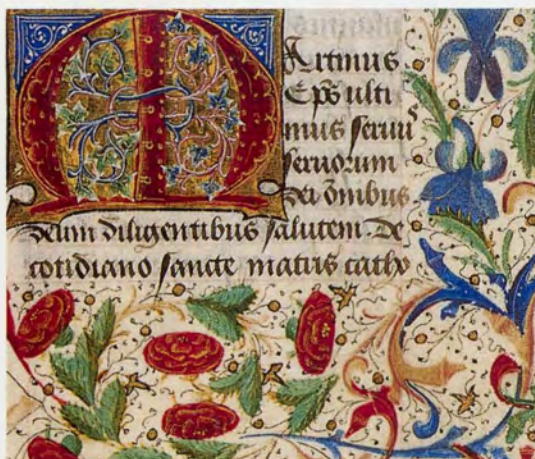 MArtinus
Ep̄s ulti
mus seruꝰ
seruorum
dei õmibus
deum diligentibus salutem. De
cotidiano sancte matris catho